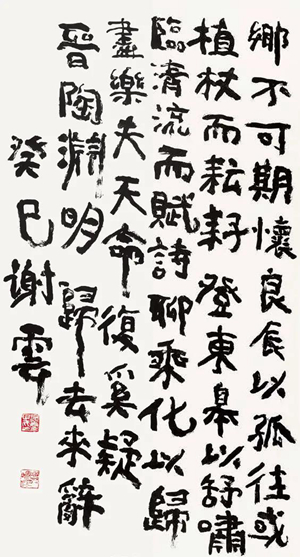 鄉不可期懷良辰以孤往或
植杖而耘耔登東皋以舒嘯
臨清流而賦詩聊乘化以歸
盡樂夫天命復奚疑
晉陶淵明歸去來辭
癸巳謝雲